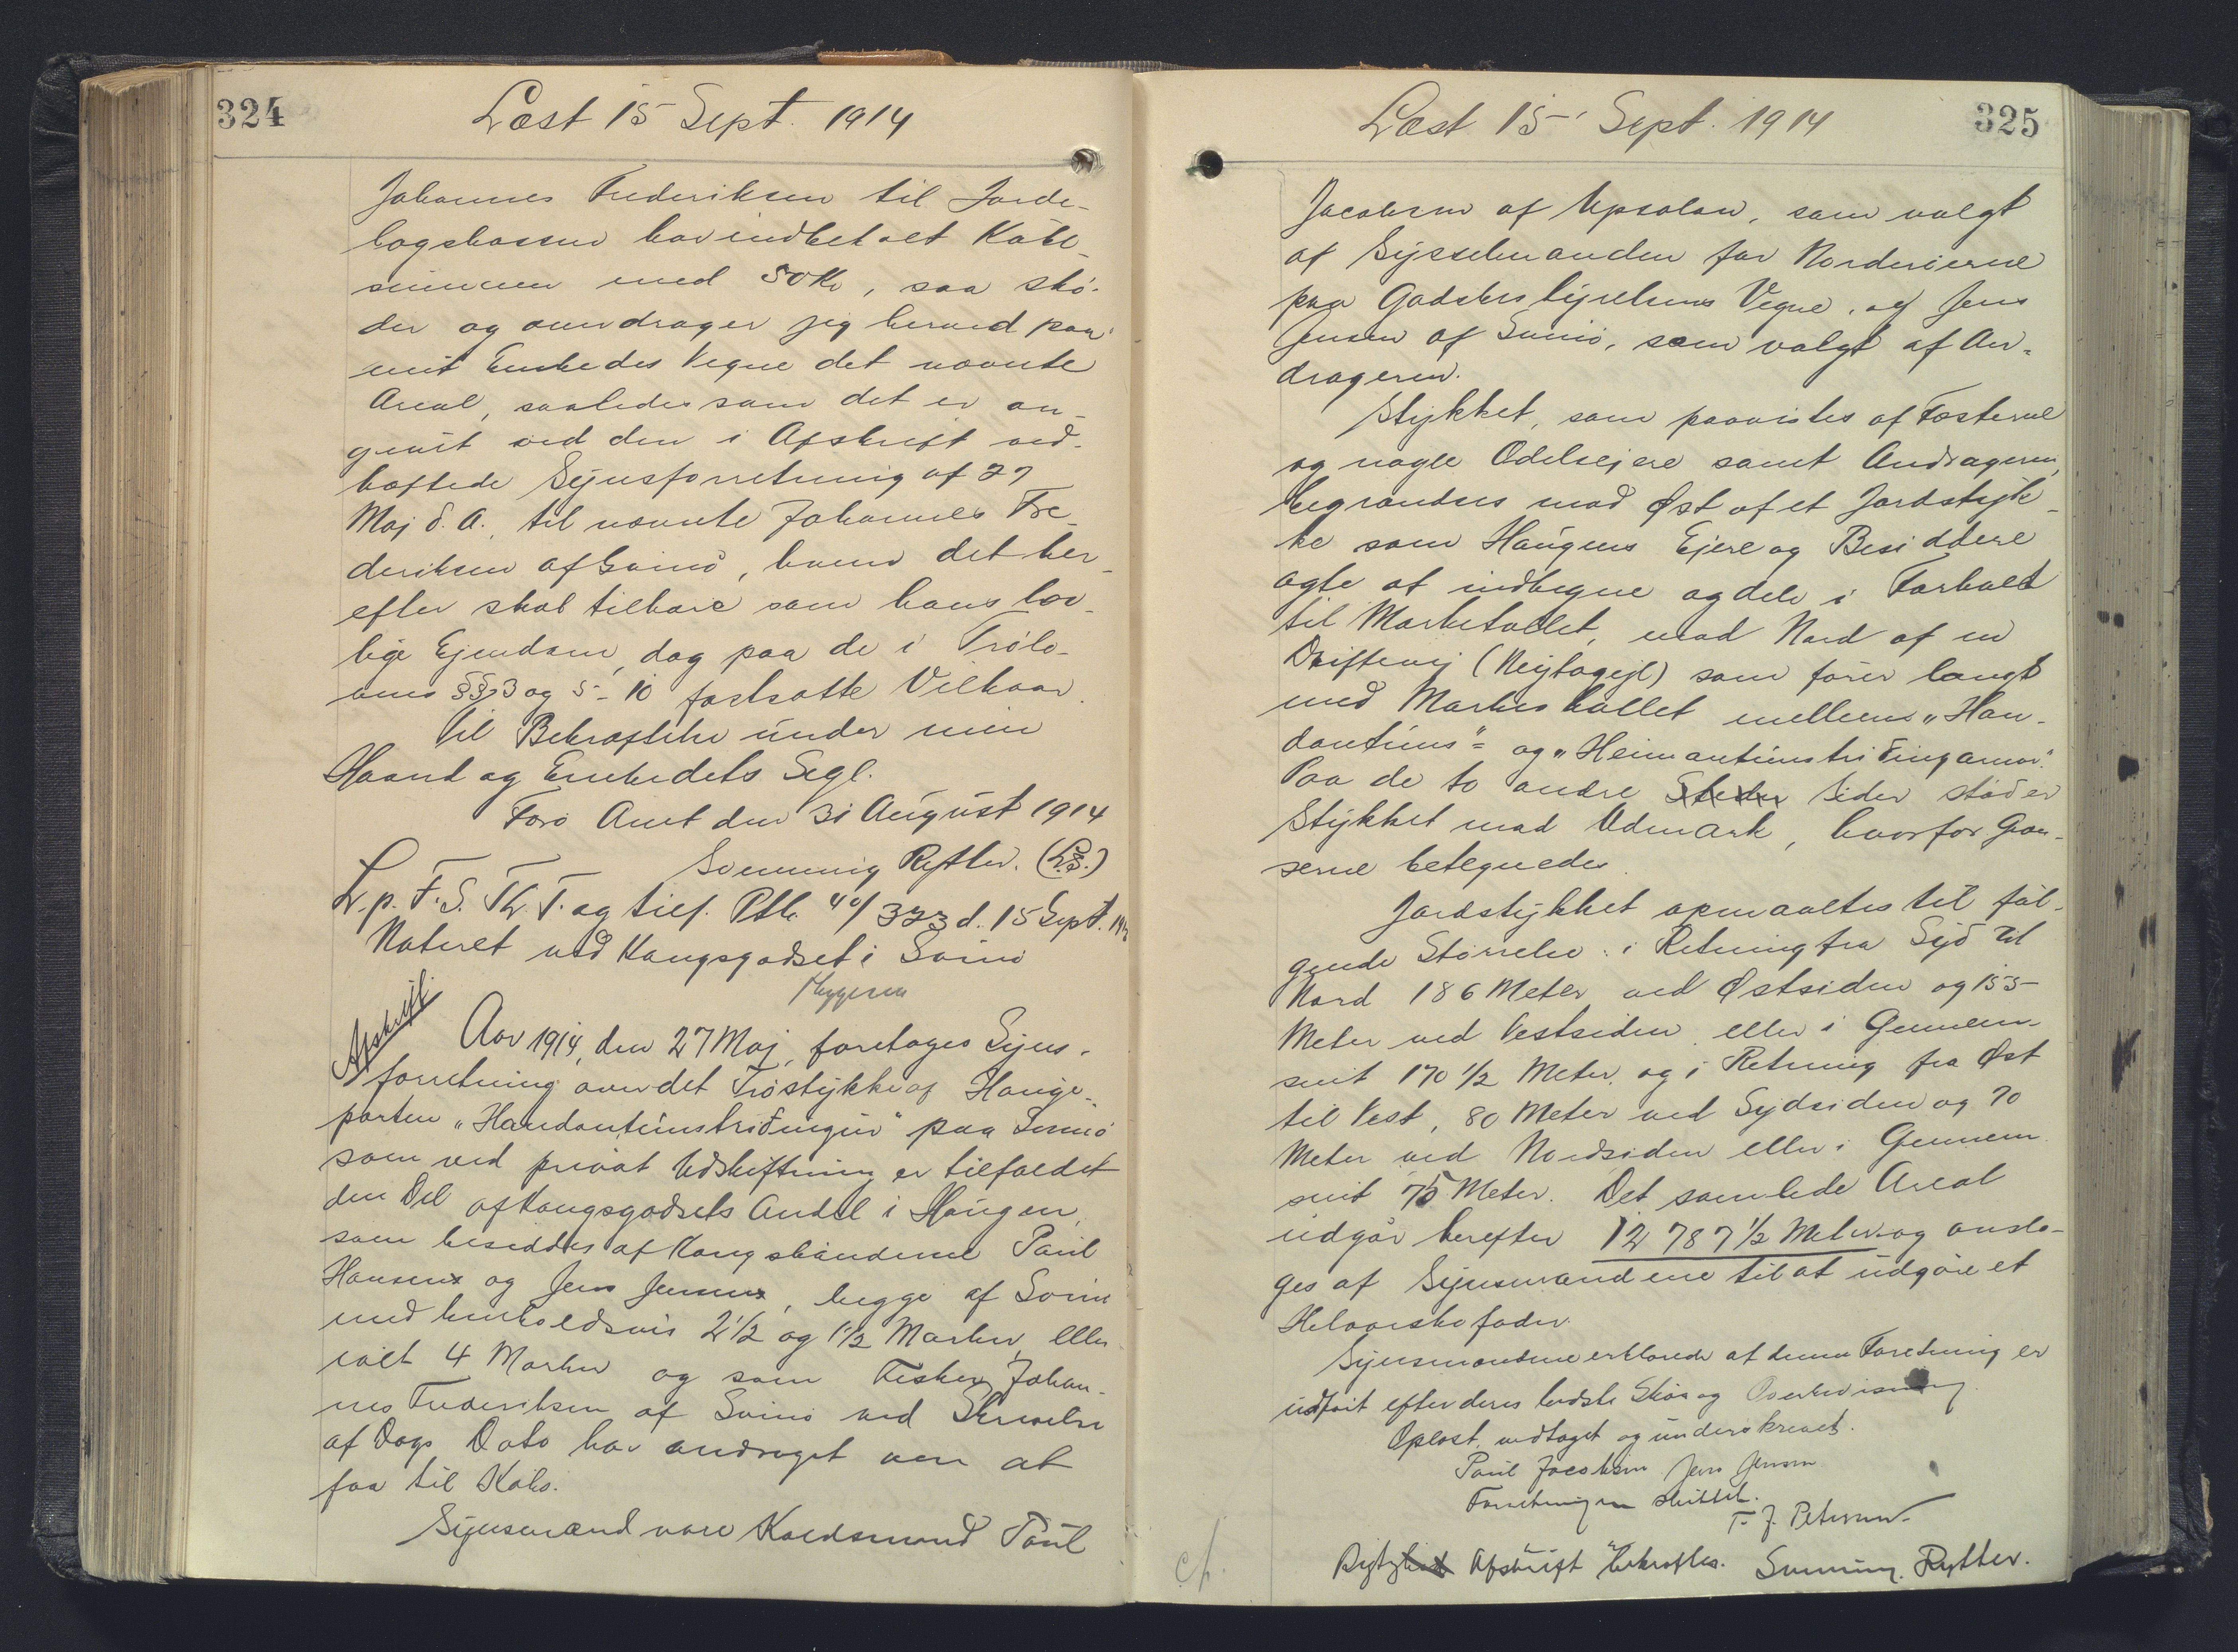 324
Læst 15 Sept. 1914
Johannes Frederiksen til Jorde-
bogskassen har indbetalt Købe-
summen med 50 Kr, saa skø-
der og overdrager jeg herved paa
mit Embedes Vegne det nævnte
Areal, saaledes som det er an-
givit ved den i Afskrift ved-
hæftede Synsforretning af 27
Maj d. A., til nævnte Johannes Fre-
deriksen af Svinø, hvem det her-
efter skal tilhøre som hans lov-
lige Ejendom, dog paa de i Trølo-
vens §§ 3 og 5-10 fastsatte Vilkaar.
Til Bekræftelse under min
Haand og Embedets Segl.
Færø Amt den 31 August 1914
Svenning Rytter. (L.S.)
L. p. F. S. Th. T. og tilf. Ptk. 40/323 d. 15 Sept. 1914
Noteret ved Kongsgodset i Svinø
Afskrift
Aar 1914, den 27 Maj, foretoges Syns-
forretning over det Trøstykke af Hauge-
parten "Handantúnstriðingur" paa Svinø
som ved privat Udskiftning er tilfaldet
den Del af Kongsgodsets Andel i Haugen,
som besiddes af Kongsbønderne Paul
Hansen og Jens Jensen, begge af Svinø
med henholdsvis 2½ og 1½ Marker, eller
ialt 4 Marker og som Fisker Johan-
nes Frederiksen af Svinø ved Skrivelse
af Dags Dato har andraget om at
faa til Købs.
Synsmænd vare Kaldsmand Paul
Læst 15 Sept. 1914
325
Jacobsen af Upsalen, som valgt
af Sysselmanden for Norderøerne
paa Godsbestyrelsens Vegne, og Jens
Jensen af Svinø, som valgt af An-
drageren.
Stykket, som paavistes af Fæsterne
og nogle Odelsejere samt Andrageren,
begrændses mod Øst af et Jordstyk-
ke som Haugens Ejere og Besiddere
agte at indhegne og dele i Forhold
til Marketallet, mod Nord af en
Driftevej (Neytagejl) som fører langs
med Markeskallet mellem "Han-
dantúns"= og "Heimantúnstriðingarnar".
Paa de to andre Steder Sider støder
Stykket mod Udmark, hvorfor Græn-
serne betegnedes.
Jordstykket opmaaltes til føl-
gende Størrelse: i Retning fra Syd til
Nord 186 Meter ved Østsiden og 155
Meter ved Vestsiden eller i Gennem-
snit 170 ½ Meter, og i Retning fra Øst
til Vest, 80 Meter ved Sydsiden og 70
Meter ved Nordsiden eller i Gennem
snit 75 Meter. Det samlede Areal
udgør herefter 12 787 ½ Meter og ansto-
ges af Synsmændene til at udgøre et
Helaarskofoder.
Synsmændene erklærede at denne Forretning er
udført efter deres bedste Skøn og Overbevisning.
Oplæst, vedtaget og underskrevet.
Paul Jacobsen Jens Jensen
Forretningen sluttet.
T. J. Petersen
Afskrift bekræftes. Svenning Rytter.